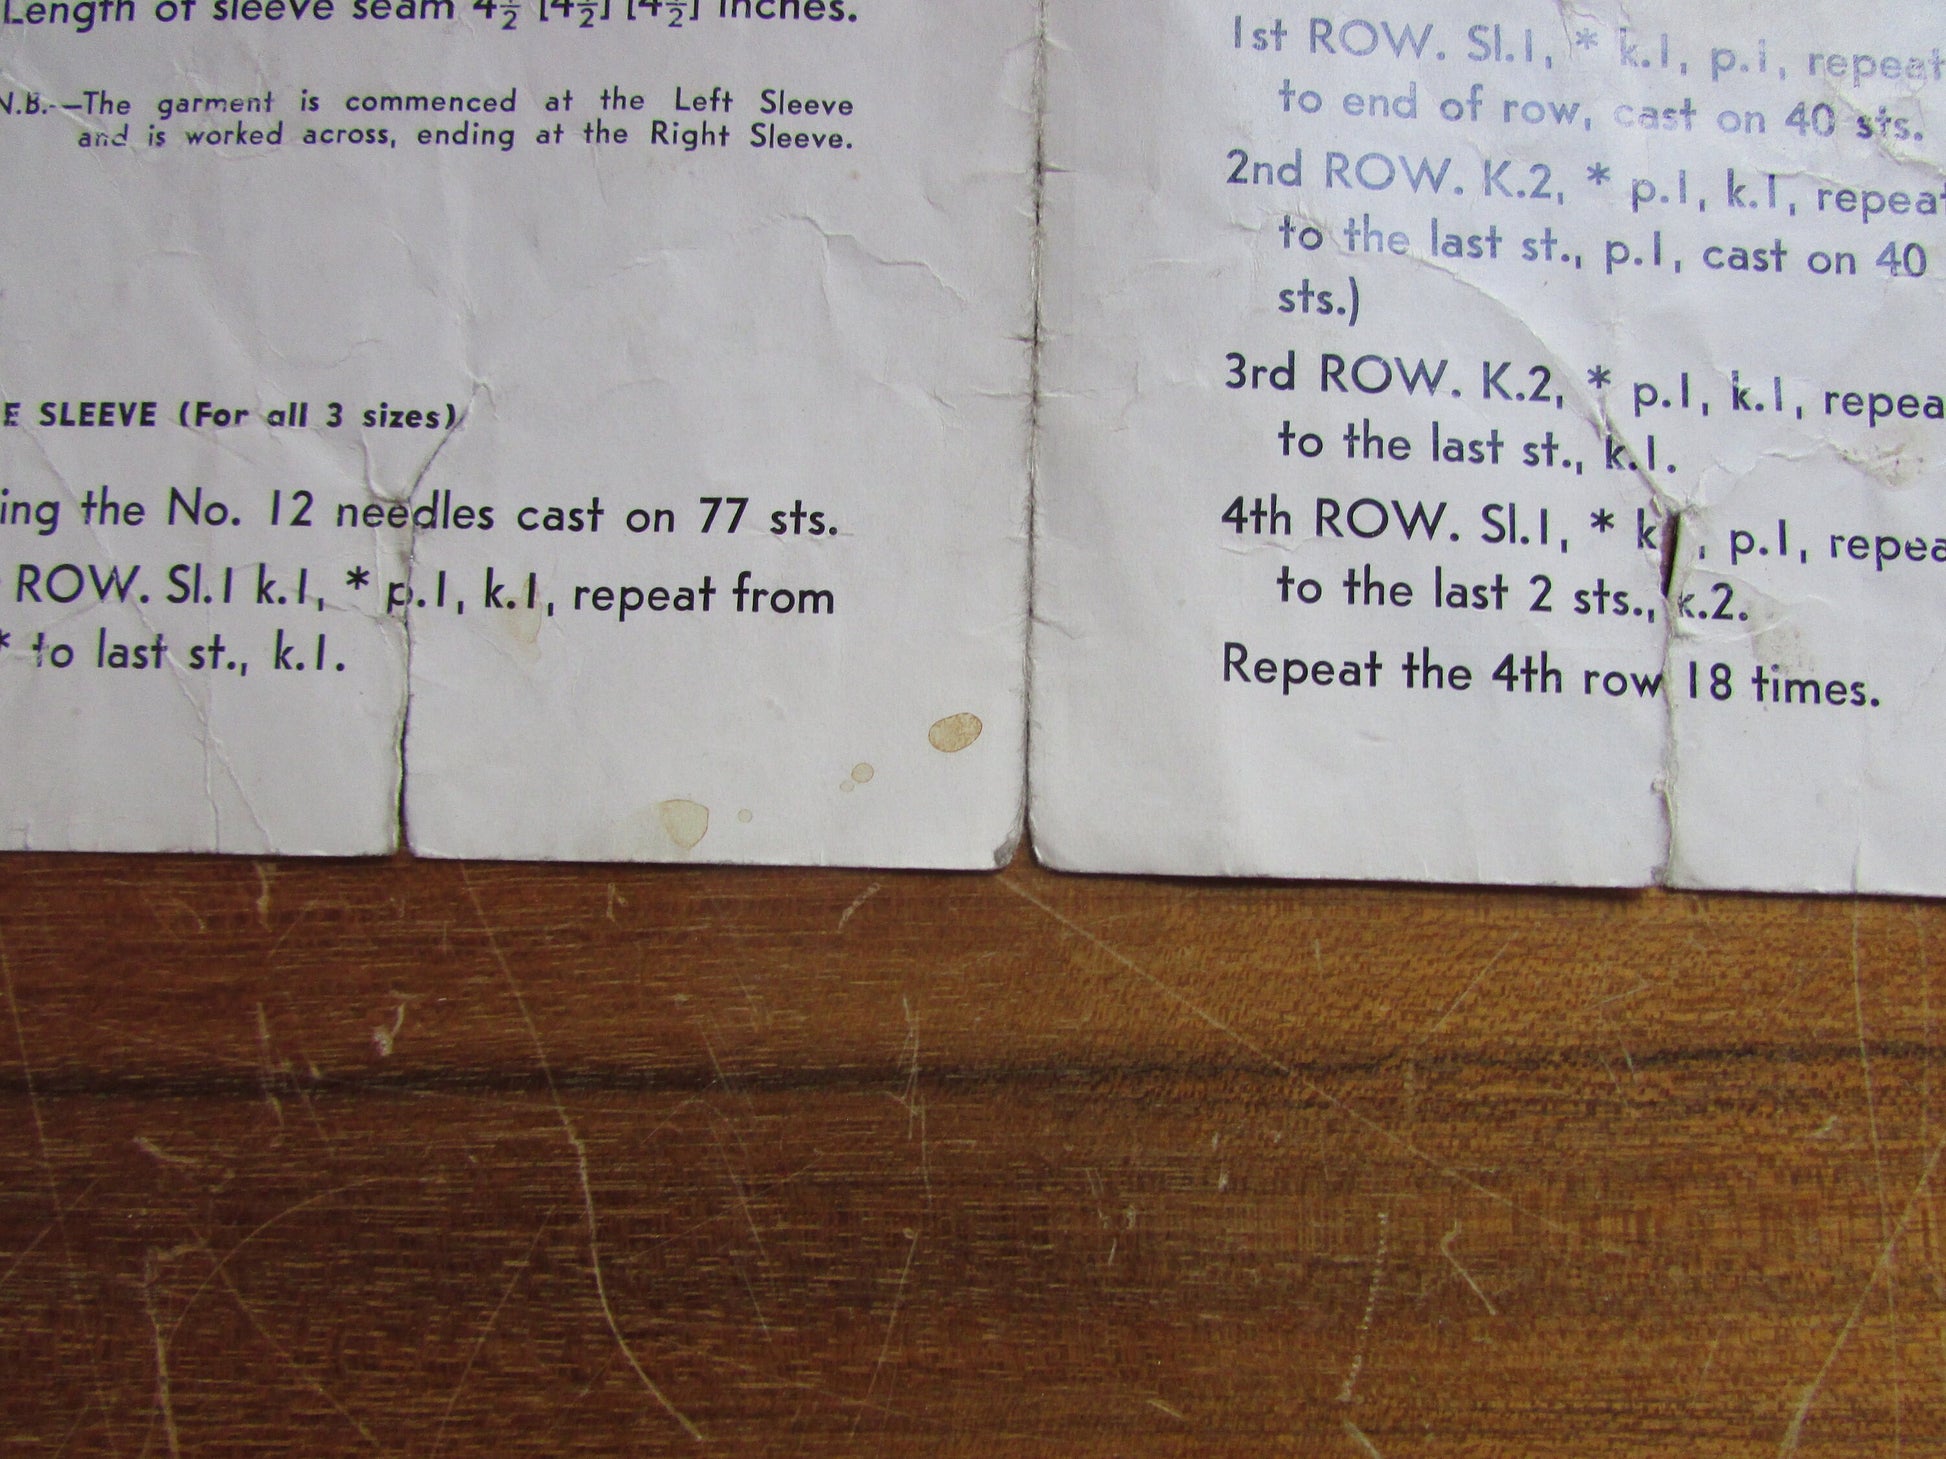 Length of sleeve seam 4½ [4½] [4½] inches.
N.B.—The garment is commenced at the Left Sleeve
and is worked across, ending at the Right Sleeve.
E SLEEVE (For all 3 sizes)
ing the No. 12 needles cast on 77 sts.
ROW. Sl.1 k.1, * p.1, k.1, repeat from
* to last st., k.1.
1st ROW. Sl.1, * k.1, p.1, repeat
to end of row, cast on 40 sts.
2nd ROW. K.2, * p.1, k.1, repeat
to the last st., p.1, cast on 40
sts.)
3rd ROW. K.2, * p.1, k.1, repea
to the last st., k.1.
4th ROW. Sl.1, * k , p.1, repea
to the last 2 sts., k.2.
Repeat the 4th row 18 times.